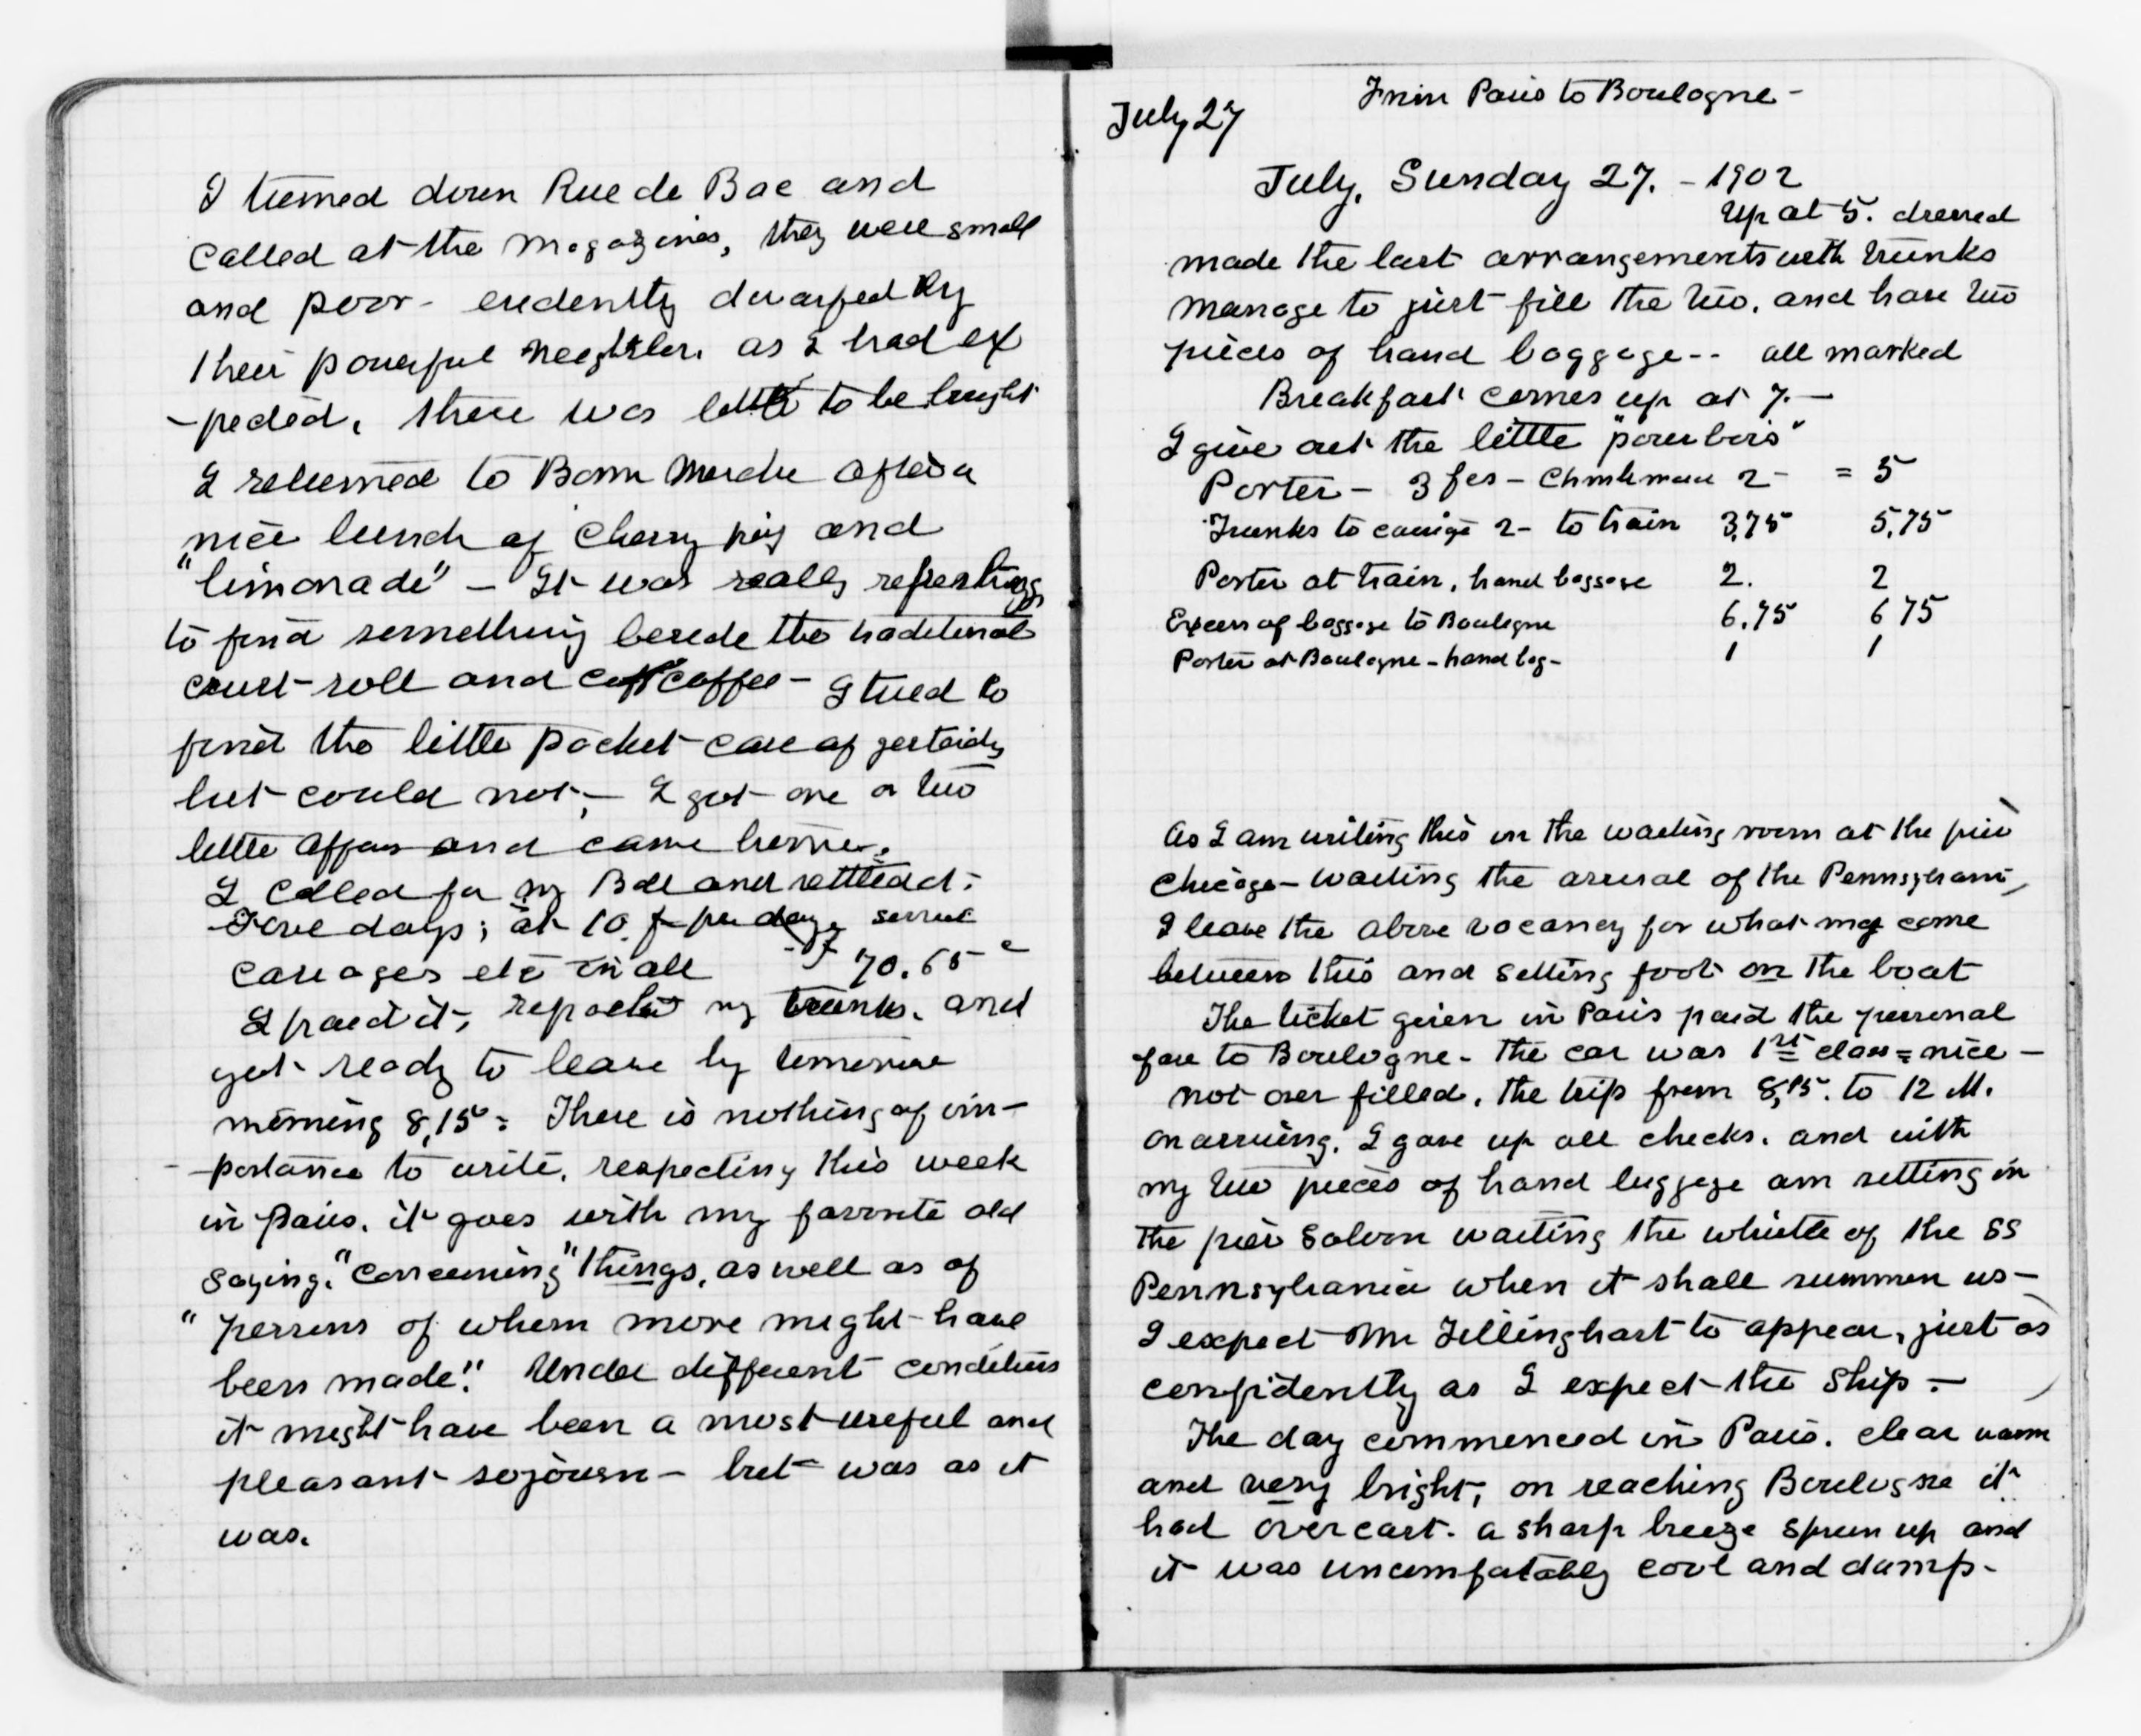 I turned down Rue de Bac and
called at the Magazines, they were small
and poor - evidently dwarfed by
their powerful neighbor. as I had ex
-pected, there was little to be bought
I returned to Bonn Marche after a
nice lunch of cherry pie and
"limonade" - It was really refreshing
to find something beside the traditional
crust-roll and coffee - I tried to
find the little pocket case of yesterday
but could not, - I got one or two
little affairs and came home.
I called for my Bill and settled:
Five days; at 10 f per day, service
carages etc in all - f 70.65 c
I paid it, repacked my trunks, and
get ready to leave by tomorrow
morning 8,15: There is nothing of im-
-portance to write, respecting this week
in Paris. it goes with my favorite old
saying. "Concerning" things, as well as of
"persons of whom more might have
been made". Under different conditions
it might have been a most useful and
pleasant sojourn - but was as it
was.
From Paris to Boulogne -
July 27
July, Sunday 27. - 1902
Up at 5. dressed
made the last arrangements with trunks
manage to just fill the two. and have two
pieces of hand baggage -- all marked
Breakfast comes up at 7. -
I give out the little "pourbois"
Porter - 3 fcs - 2 - = 5
Trunks to carrige 2 - to train 3,75 5,75
Porter at train, hand baggage 2. 2
Excess of baggage to Boulogne 6,75 6 75
Porter at Boulogne - hand bag - 1 1
As I am writing this in the waiting room at the pier
Chicago - waiting the arrival of the Pennsylvania,
I leave the above vacancy for what may come
between this and setting foot on the boat
The ticket given in Paris paid the personal
fare to Boulogne - The car was 1st class = nice -
not over filled, the trip from 8,15. to 12 M.
on arriving. I gave up all checks. and with
my two pieces of hand luggage am sitting in
the pier Saloon waiting the whistle of the SS
Pennsylvania when it shall summon us -
I expect Mr Tillinghast to appear, just as
confidently as I expect the Ship. -
The day commenced in Paris. clear warm
and very bright, on reaching Boulogne it
had overcast. a sharp breeze sprun up and
it was uncomfatably cool and damp -